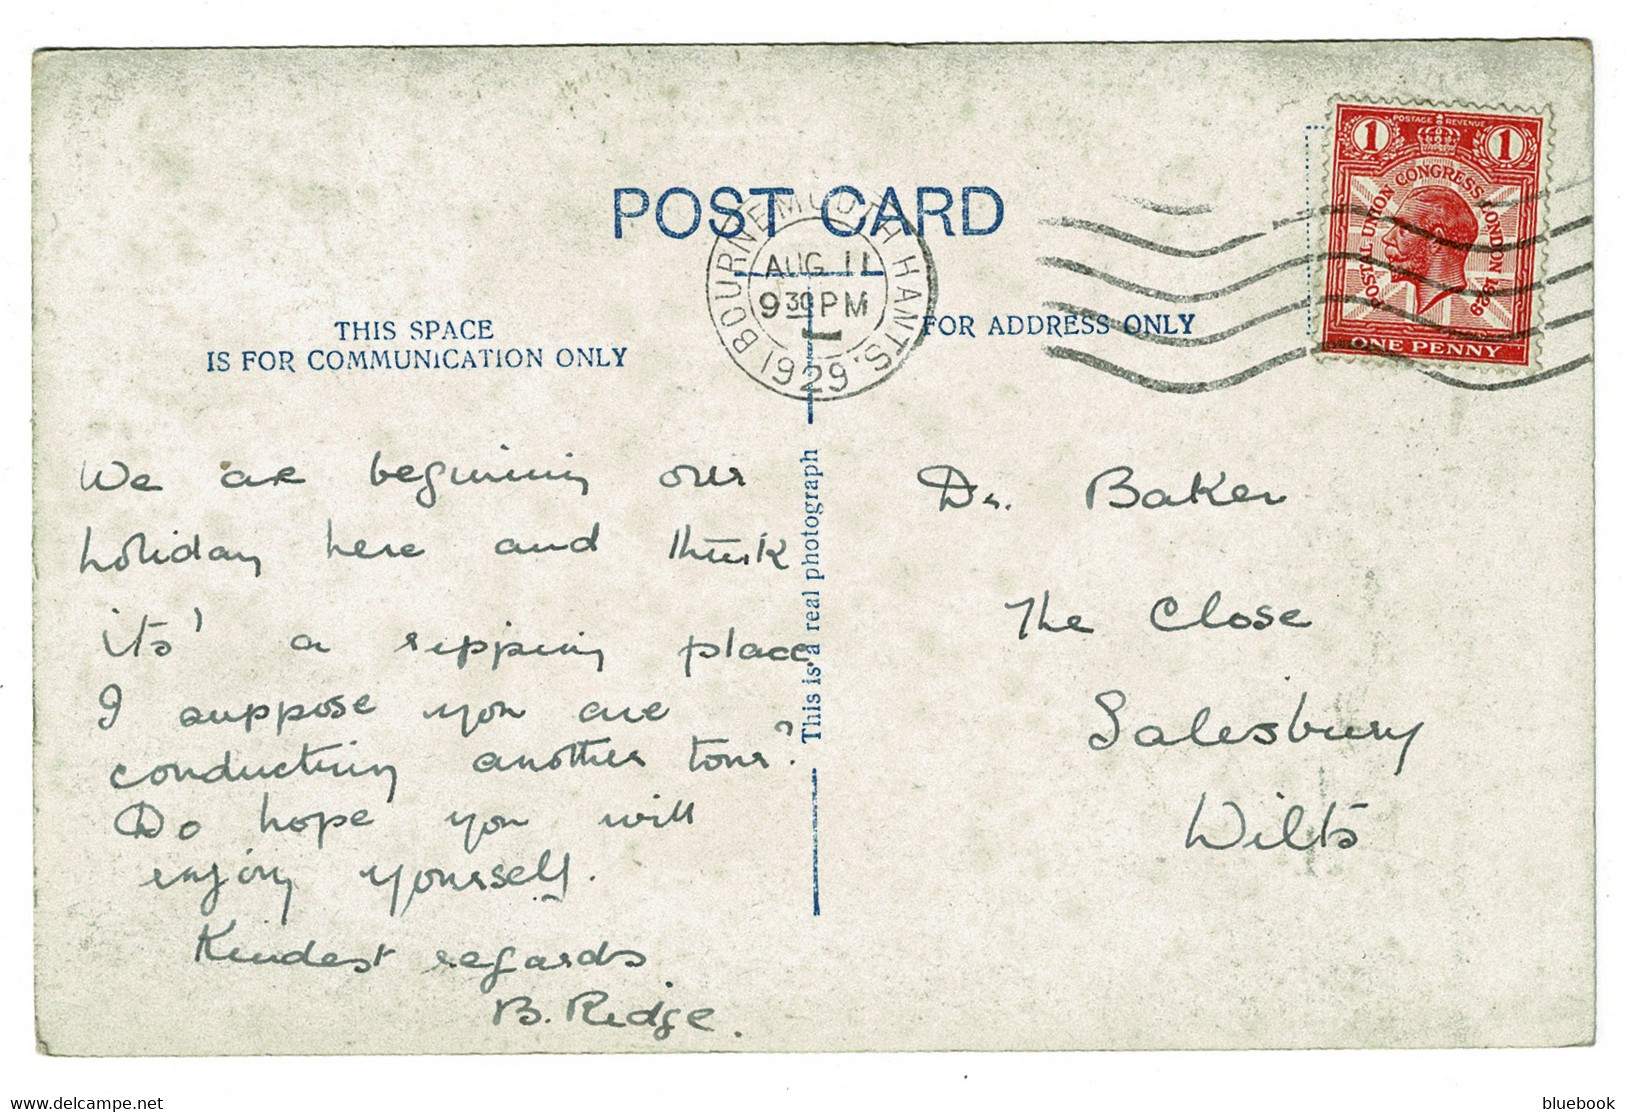 POST CARD
BOURNEMOUTH HANTS.
AUG 11
9 30 PM
1929
POSTAGE REVENUE
1 1
POSTAL UNION CONGRESS LONDON 1929
ONE PENNY
THIS SPACE
IS FOR COMMUNICATION ONLY
FOR ADDRESS ONLY
We are beginning our
holiday here and think
its' a ripping place.
I suppose you are
conducting another tour?
Do hope you will
enjoy yourself.
Kindest regards
B. Ridge.
This is a real photograph
Dr. Baker
The Close
Salesbury
Wilts
delcampe.net
bluebook